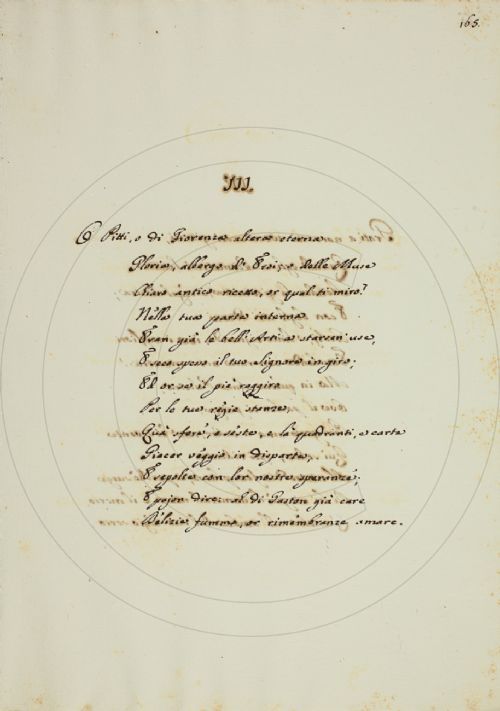 165.
III.
O Pitti, o di Fiorenza altera eterna
Gloria, albergo d' Eroi, e delle Muse
Chiaro antico ricetto, or qual ti miro?
Nella tua parte interna
Eran già le bell' Arti a starsen' use,
E seco spesso il tuo Signore in giro;
E or se il piè raggiro
Per le tue regie stanze,
Quà sfere, e seste, e là quadranti, e carte
Giacer veggio in disparte,
E sepolte con lor nostre speranze,
E pajon dire: al di Gaston già care
Delizie fummo, or rimembranze amare.